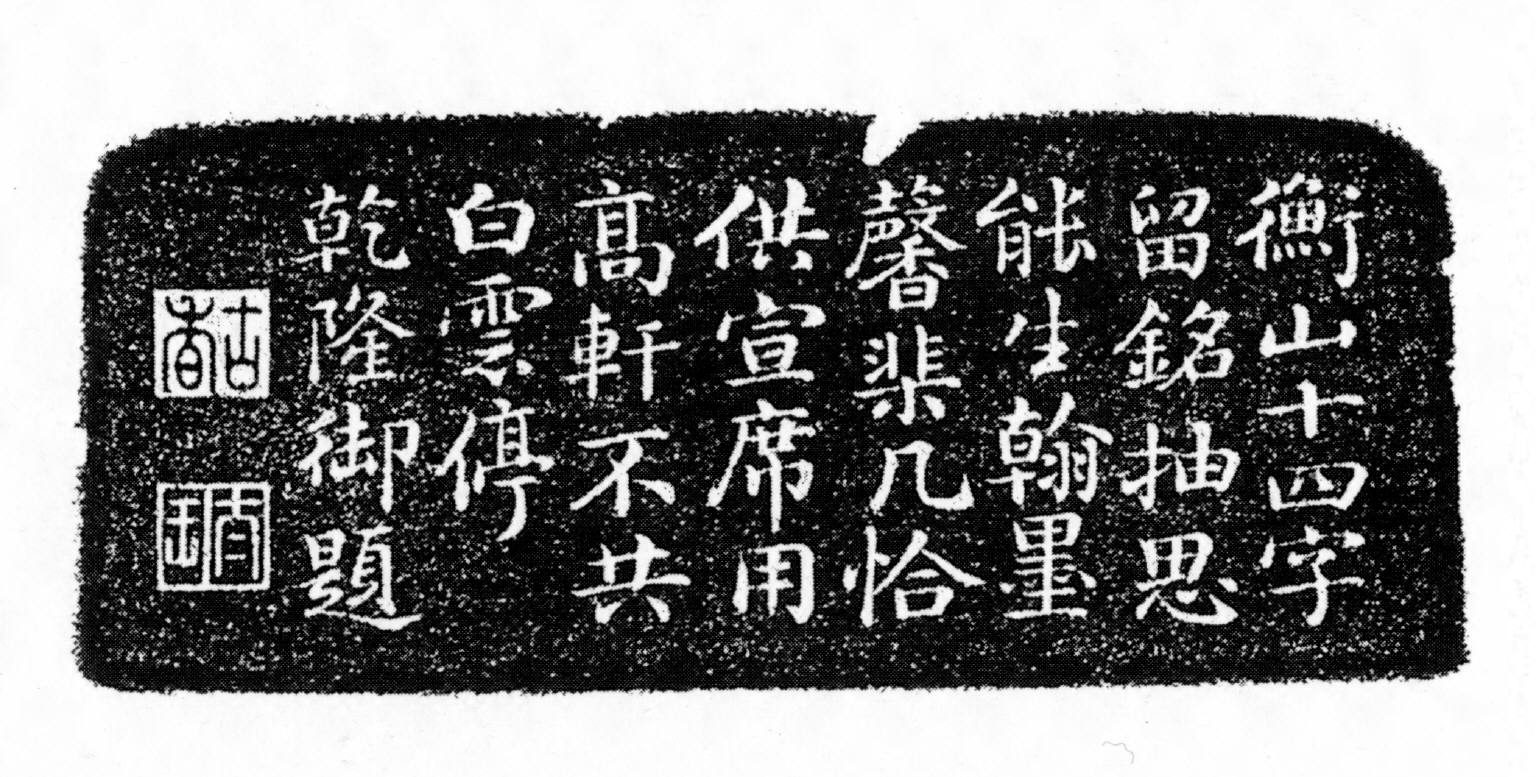 衡山十四字
留銘抽思
能生翰墨
馨棐几恰
供宣席用
髙軒不共
白雲停
乾隆御題
古香